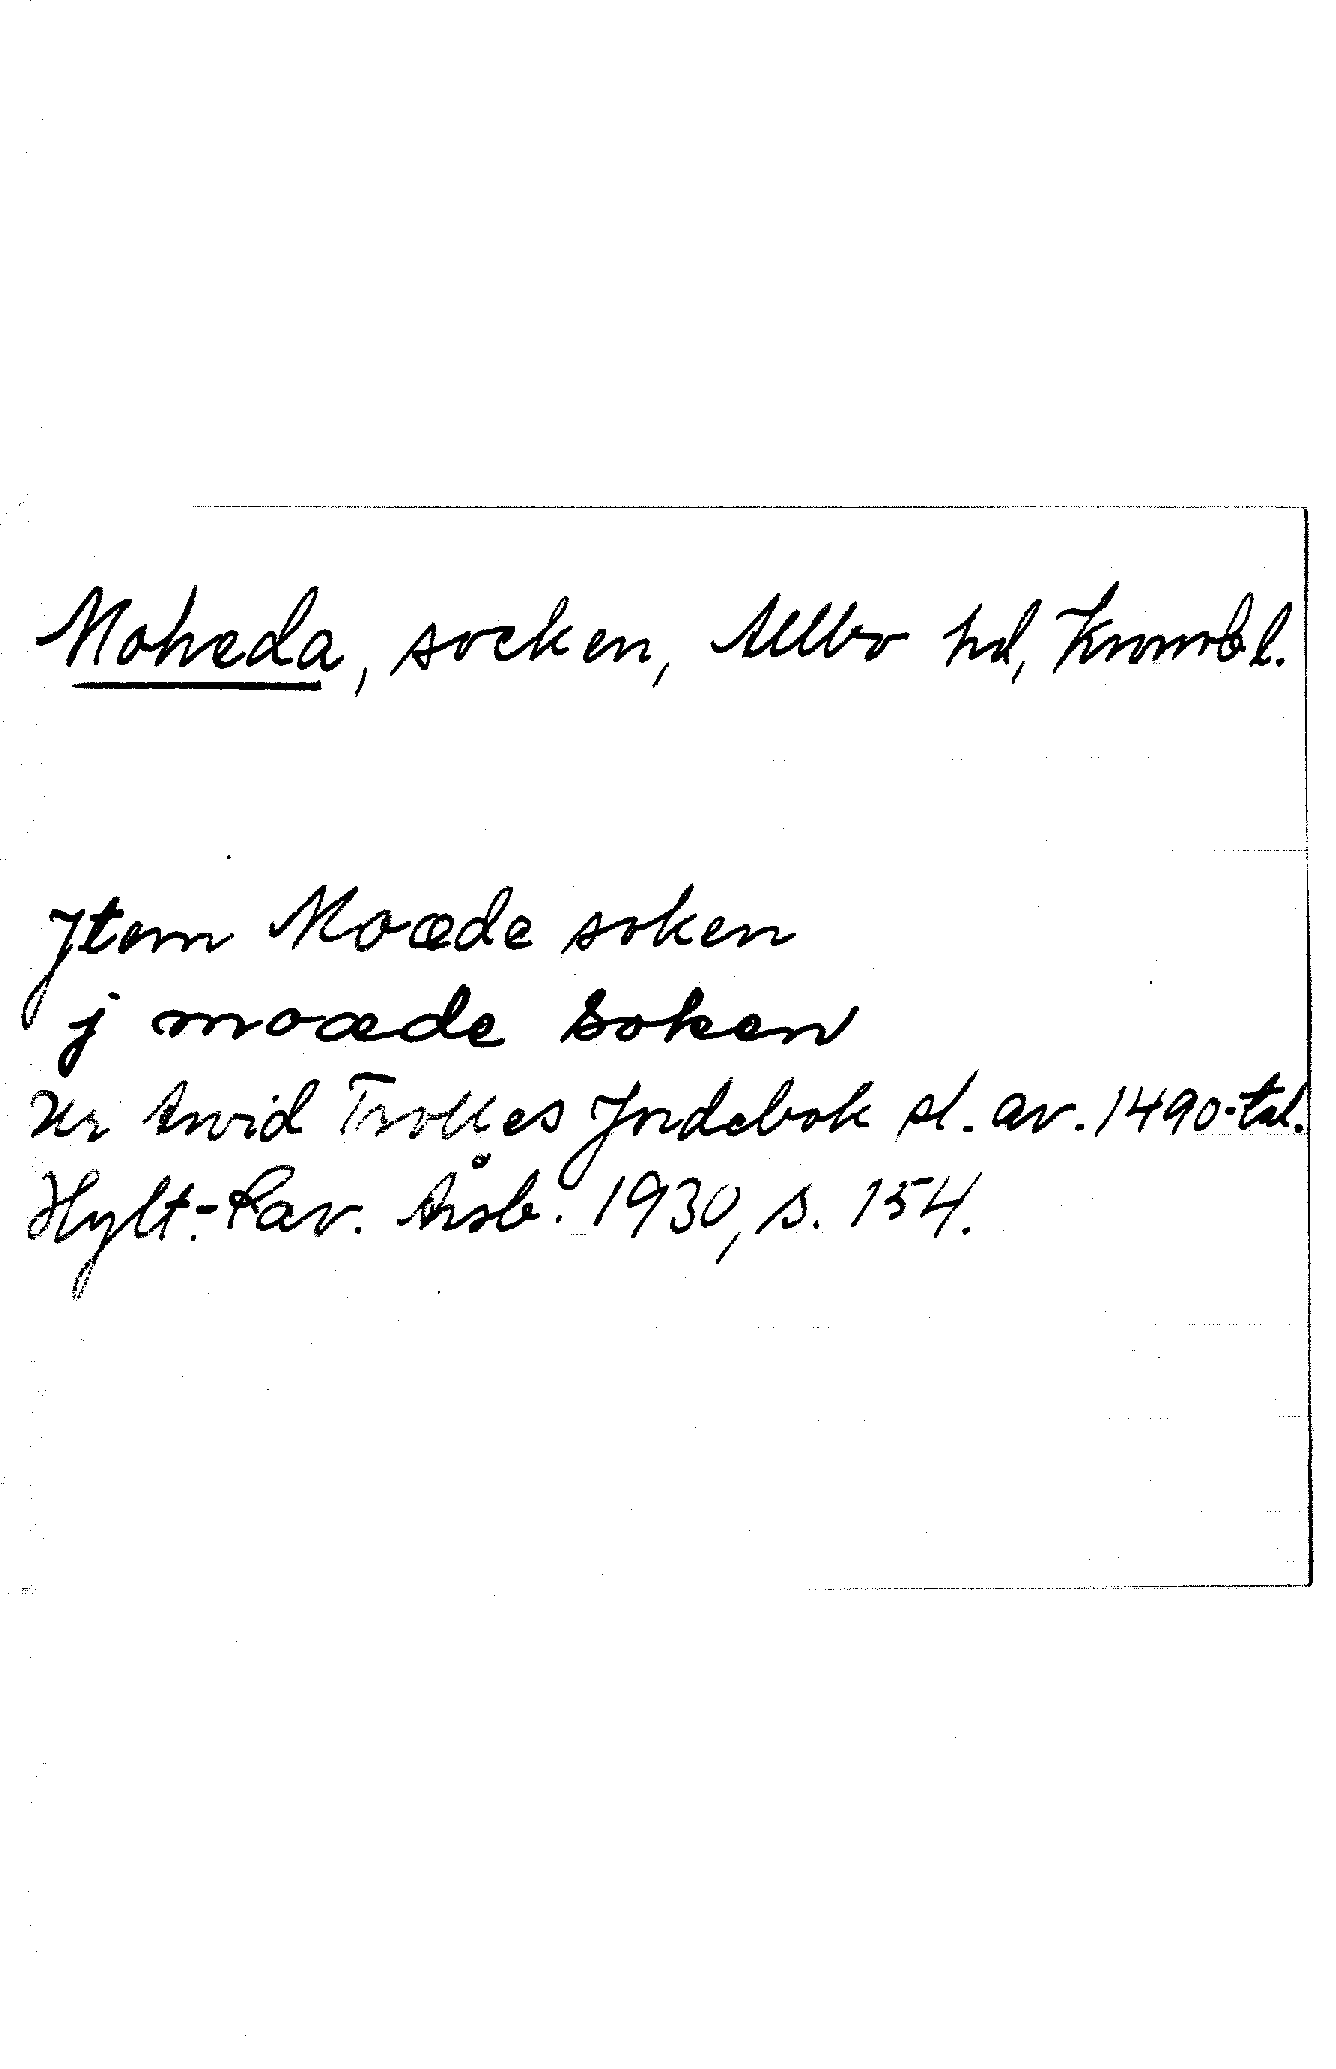 Moheda, socken, Allbo hd, Kronobl.
Jtem Moæde soken
j moæde soken
Ur Arvid Trolles Jordebok sl. av. 1490-tal.
Hylt.-Cav. Årsb. 1930, s. 154.